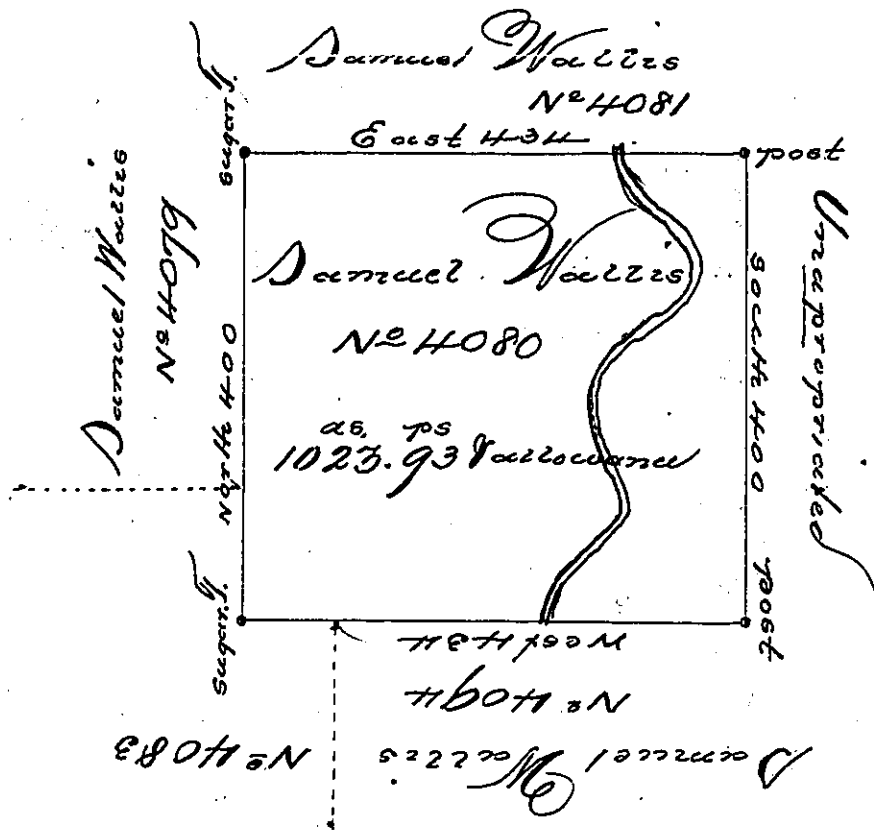 Samuel Wallis
Nº 4081
Sugar T.
East 434
post
Samuel Wallis
Nº 4079
North 400
Samuel Wallis
Nº 4080
as. ps
1023. 93 & allowance
South 400
Unapropriated
Sugar T.
West 434
post
Nº 4094
Samuel Wallis
Nº 4083